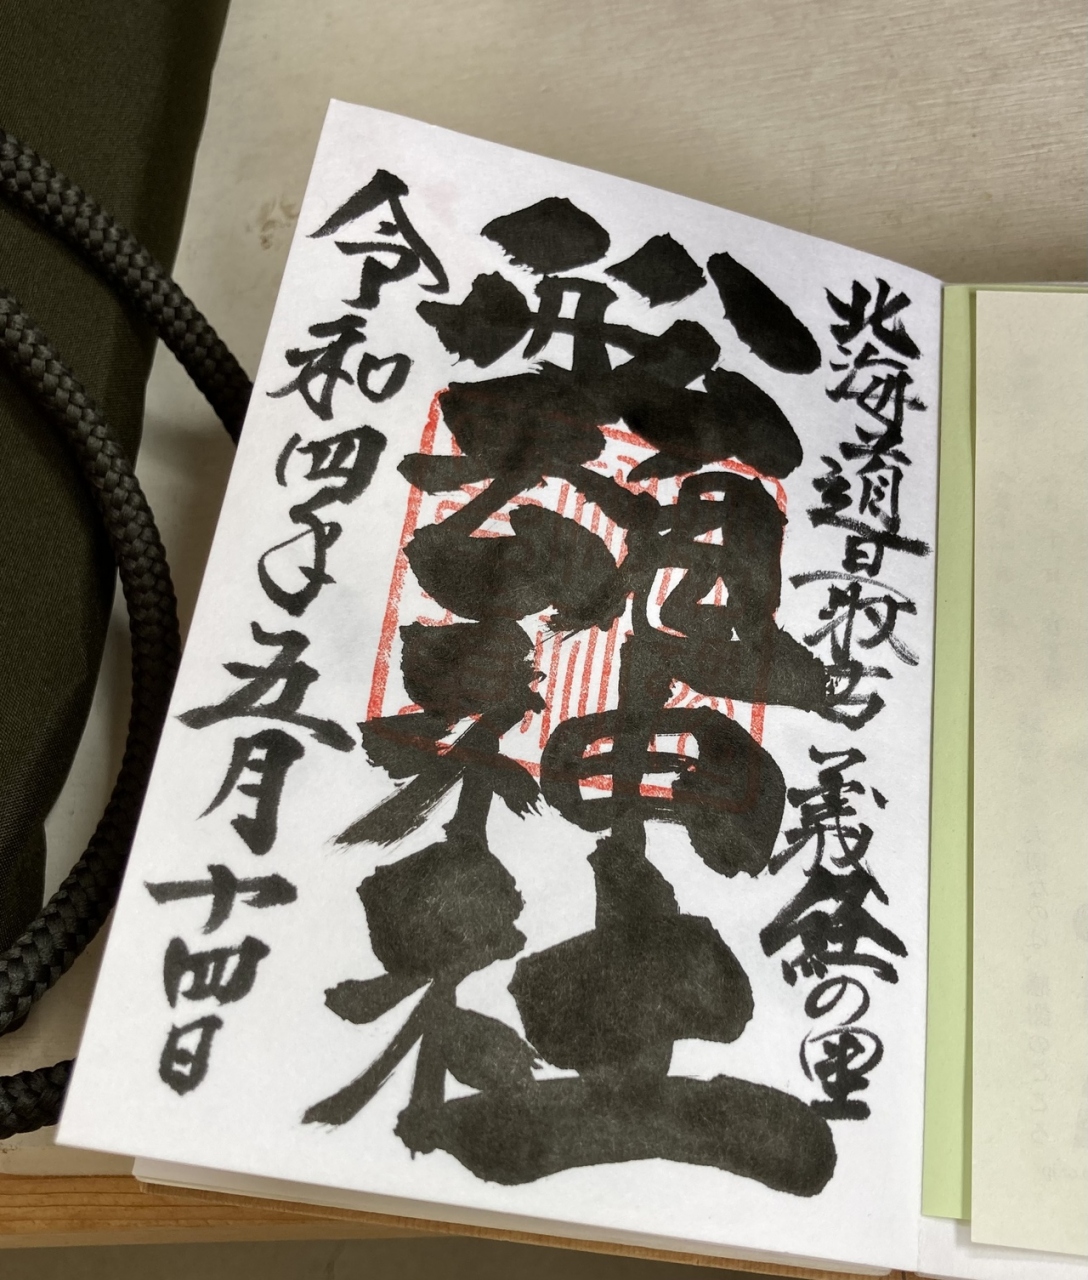 北海道最古 義経の里
舩魂神社
令和四年五月十四日